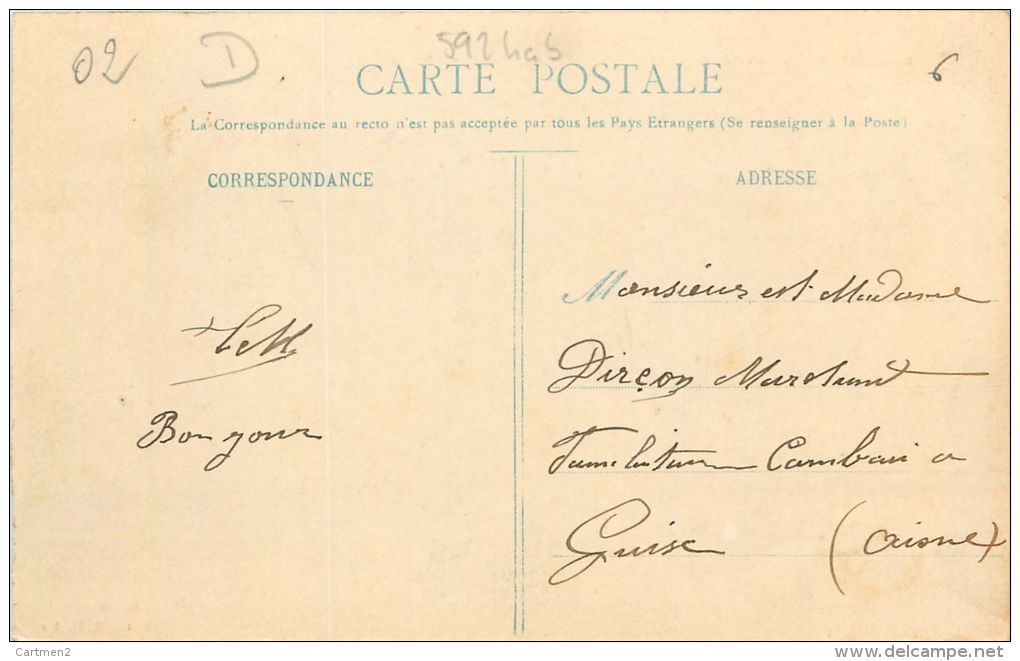 02 D 6
CARTE POSTALE
La Correspondance au recto n'est pas acceptée par tous les Pays Etrangers (Se renseigner à la Poste)
CORRESPONDANCE
ADRESSE
Bonjour
Monsieur et Madame
Dirçon Marchand
Cambrai a
Guise (Aisne)
Cartmen2
www.delcampe.net